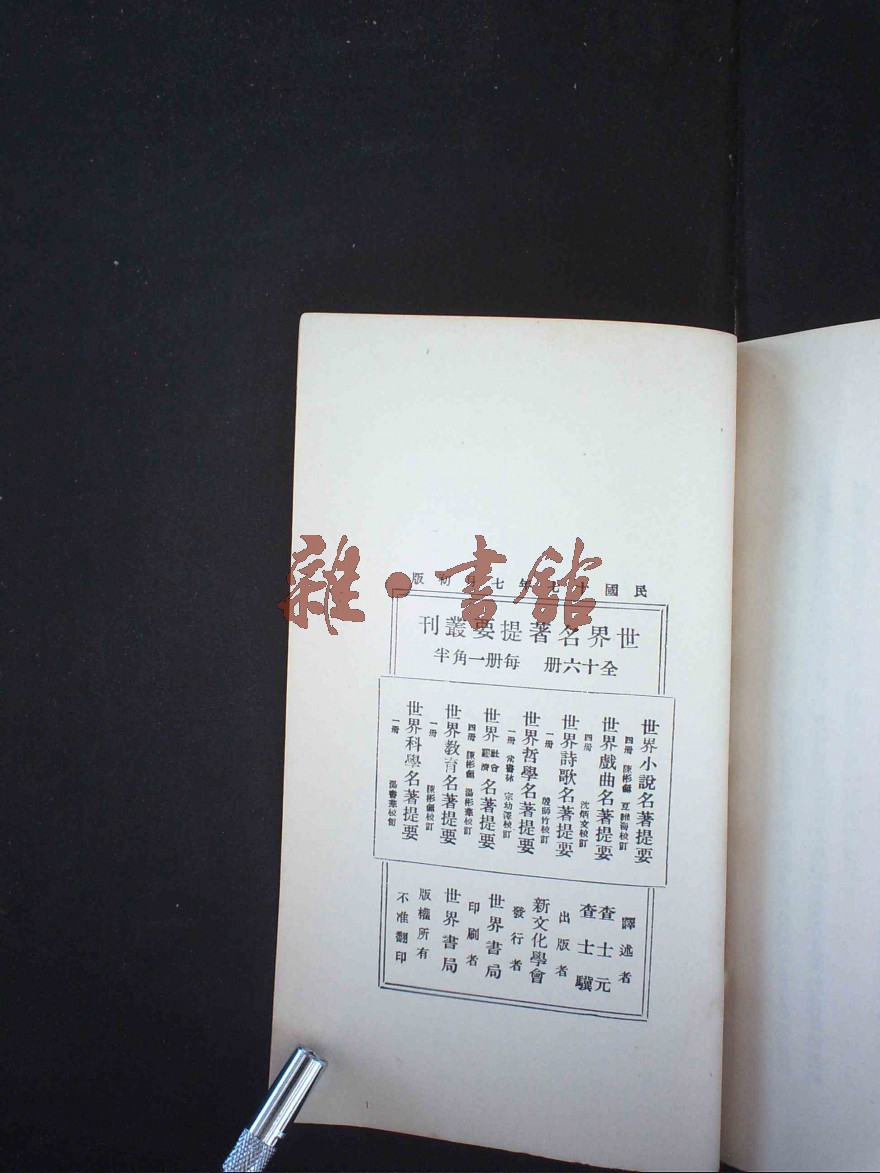 雜·書館
民國十七年七月初版
世界名著提要叢刊
全十六册 每册一角半
世界小說名著提要
四册 陳彬龢 校訂
世界戲曲名著提要
四册 沈炳文校訂
世界詩歌名著提要
一册 殷師竹校訂
世界哲學名著提要
一册 常書林 宗幼澤校訂
世界社會經濟名著提要
四册 陳彬龢 湯彬華校訂
世界教育名著提要
一册 陳彬龢校訂
世界科學名著提要
一册 湯書華校訂
譯述者
查士元
查士驥
出版者
新文化學會
發行者
世界書局
印刷者
世界書局
版權所有
不准翻印